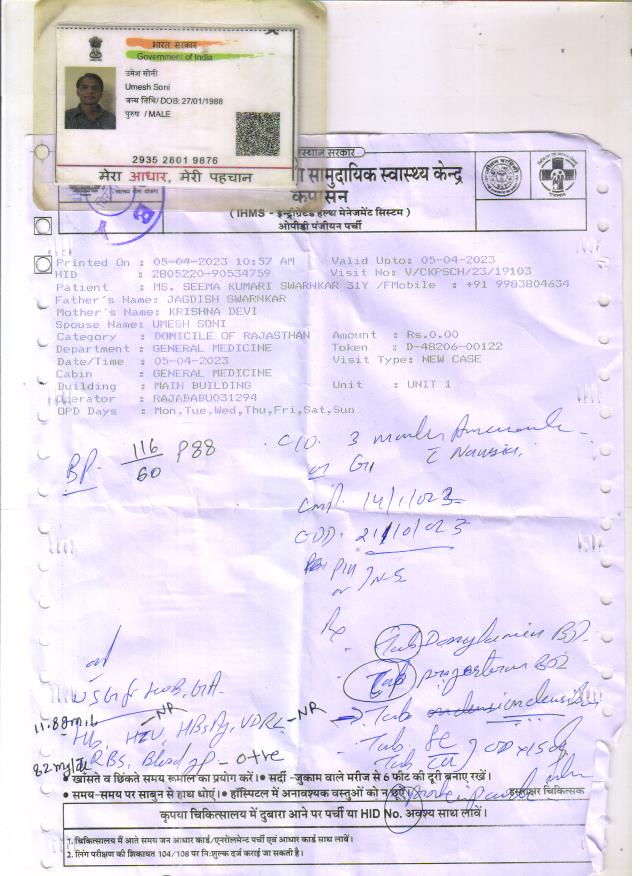 भारत सरकार
Government of India
उमेश सोनी
Umesh Soni
जन्म तिथि/ DOB: 27/01/1988
पुरुष / MALE
2935 2801 9876
मेरा आधार, मेरी पहचान
सरकार
सामुदायिक स्वास्थ्य केन्द्र
कपासन
( IHMS - इन्टीग्रेटेड हेल्थ मेनेजमेंट सिस्टम )
ओपीडी पंजीयन पर्ची
Printed On : 05-04-2023 10:57 AM Valid Upto: 05-04-2023
HID : 2805220-90534759 Visit No: V/CKPSCH/23/19103
Patient : MS. SEEMA KUMARI SWARNKAR 31Y /F Mobile : +91 9983804634
Father's Name: JAGDISH SWARNKAR
Mother's Name: KRISHNA DEVI
Spouse Name: UMESH SONI
Category : DOMICILE OF RAJASTHAN Amount : Rs.0.00
Department : GENERAL MEDICINE Token : D-48206-00122
Date/Time : 05-04-2023 Visit Type: NEW CASE
Cabin : GENERAL MEDICINE
Building : MAIN BUILDING Unit : UNIT 1
Operator : RAJABABU031294
OPD Days : Mon,Tue,Wed,Thu,Fri,Sat,Sun
BP. 116/60 P88
C/O. 3 months
Nausea
LMP. 14/1/023
EDD. 21/10/023
Rx
Tab BD
Tab BD
Tab
USG
11.88
Hb, HIV, NR HBsAg, VDRL - NR
Tab.
82 mg/dl RBS, Blood gp - O+ve
Tab OD x 15
• खाँसते व छिंकते समय रूमाल का प्रयोग करें। • सर्दी -जुकाम वाले मरीज से 6 फीट की दूरी बनाए रखें।
• समय-समय पर साबुन से हाथ धोएं। • हॉस्पिटल में अनावश्यक वस्तुओं को न छूऐं। हस्ताक्षर चिकित्सक
कृपया चिकित्सालय में दुबारा आने पर पर्ची या HID No. अवश्य साथ लावें।
1. चिकित्सालय में आते समय जन आधार कार्ड/एनरोलमेन्ट पर्ची एवं आधार कार्ड साथ लावें।
2. लिंग परीक्षण की शिकायत 104/108 पर नि:शुल्क दर्ज कराई जा सकती है।